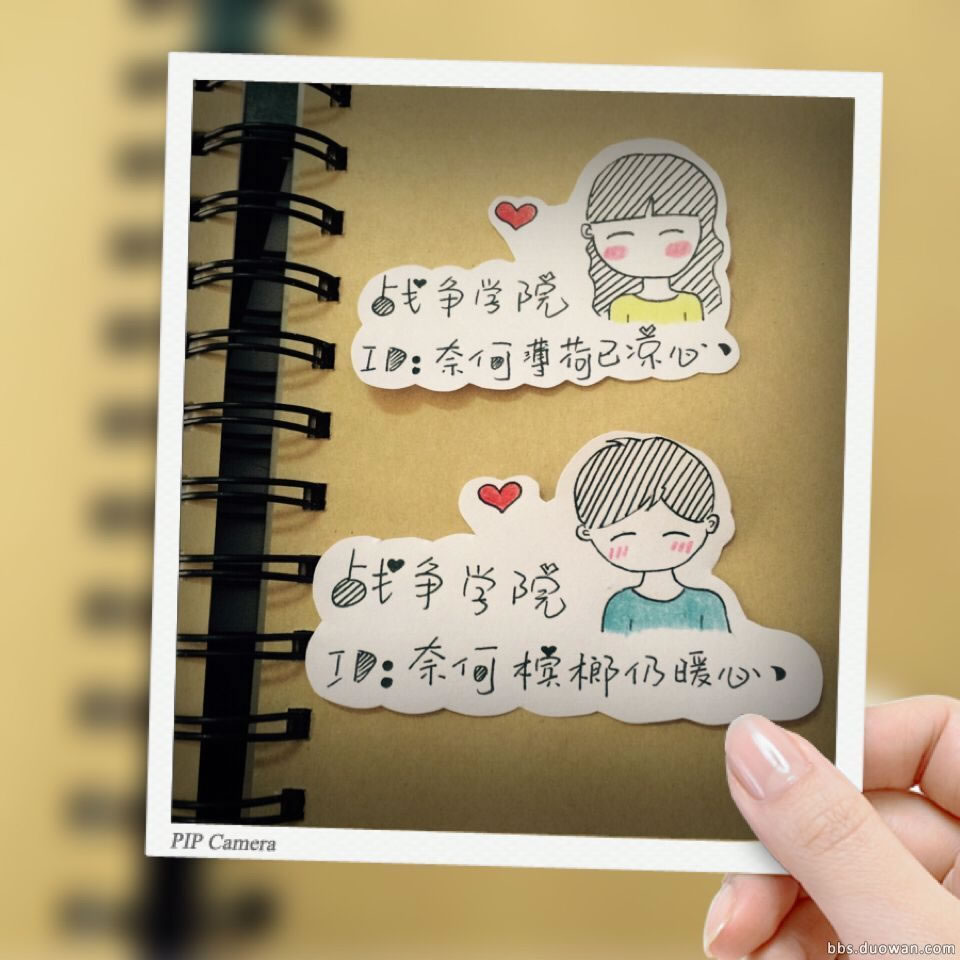 战争学院
ID:奈何薄荷已凉心、
战争学院
ID:奈何槟榔仍暖心、
PIP Camera
bbs.duowan.com